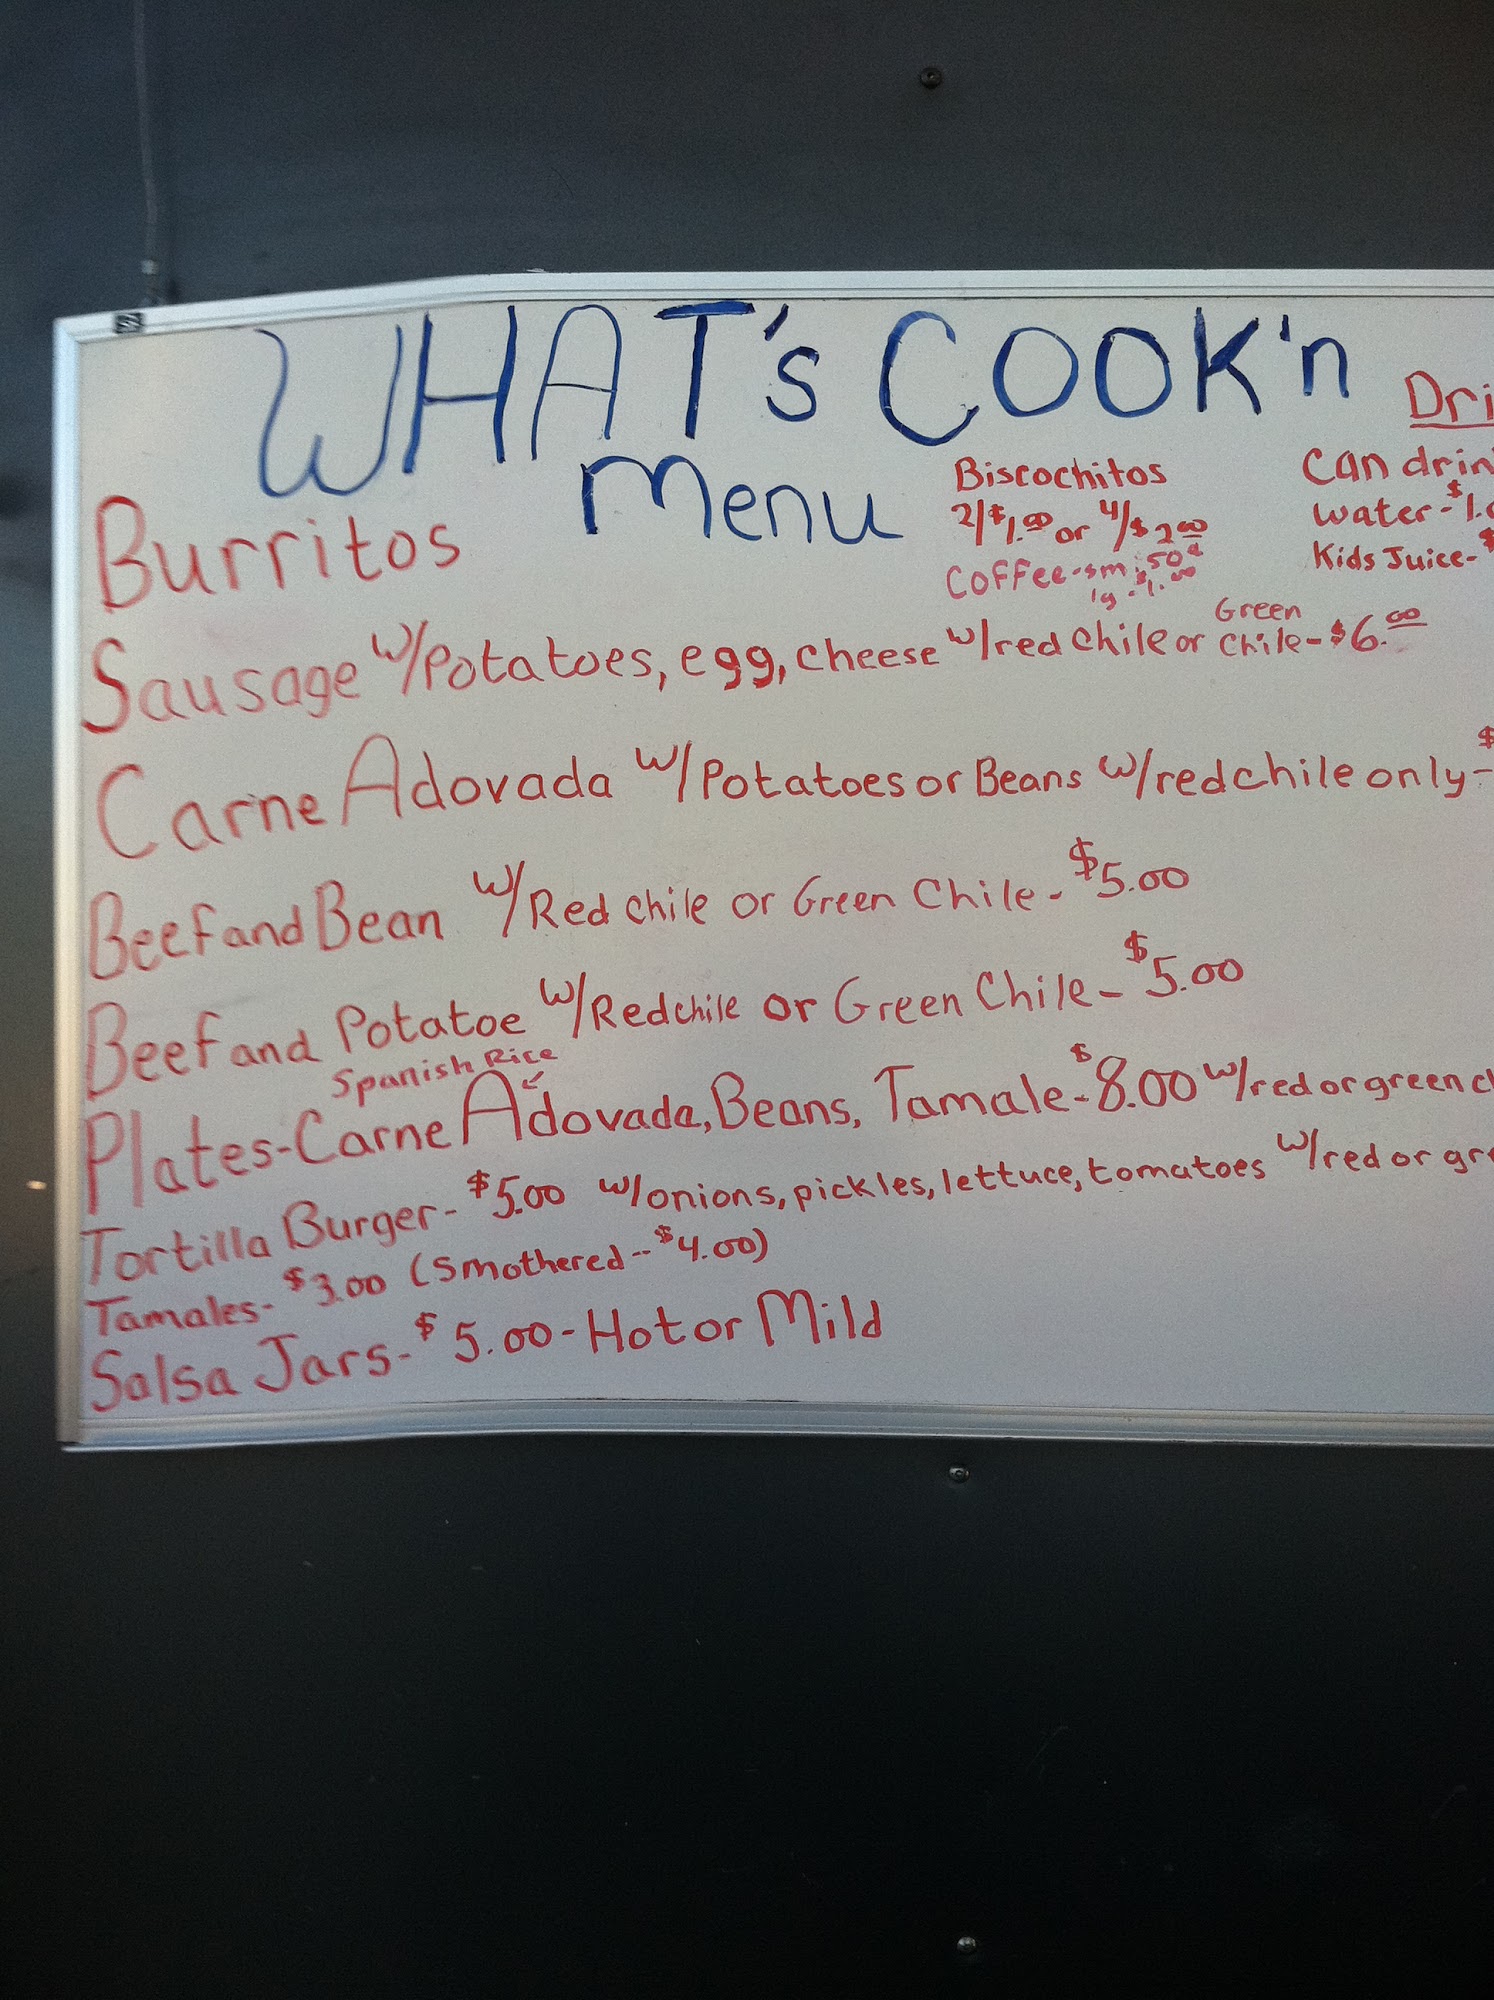 WHAT's COOK'n
Menu
Dri
Biscochitos
2/$1.00 or 4/$2.00
Coffee-sm .50¢
lg - $1.00
Can drin
water - $1.0
Kids Juice- $
Burritos
Sausage w/Potatoes, egg, cheese w/red chile or Green Chile - $6.00
Carne Adovada w/Potatoes or Beans w/red chile only - $
Beef and Bean w/Red chile or Green Chile - $5.00
Beef and Potatoe w/Red chile or Green Chile - $5.00
Spanish Rice
Plates-Carne Adovada, Beans, Tamale - $8.00 w/red or green c
Tortilla Burger - $5.00 w/onions, pickles, lettuce, tomatoes w/red or gr
Tamales - $3.00 (Smothered -- $4.00)
Salsa Jars - $5.00 - Hot or Mild